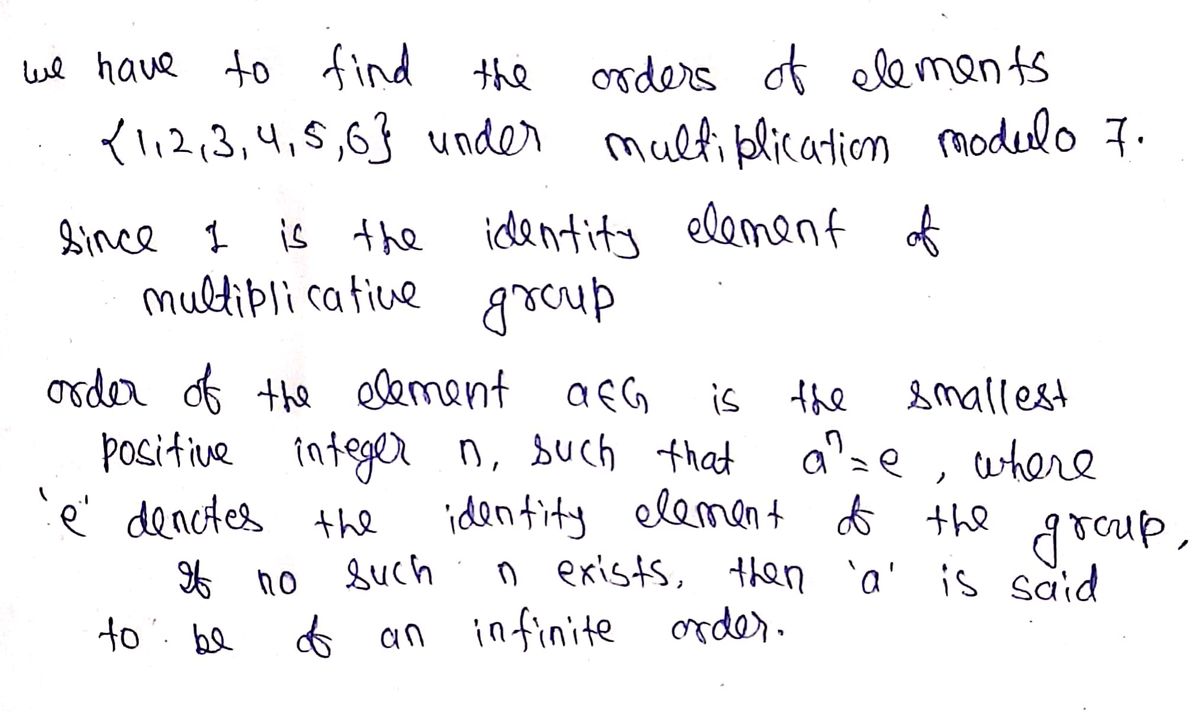 we have to find the orders of elements
{1,2,3,4,5,6} under multiplication modulo 7.
Since 1 is the identity element of
multiplicative group
order of the element a∈G is the smallest
positive integer n, such that aⁿ=e, where
'e' denotes the identity element of the group,
If no such n exists, then 'a' is said
to be of an infinite order.